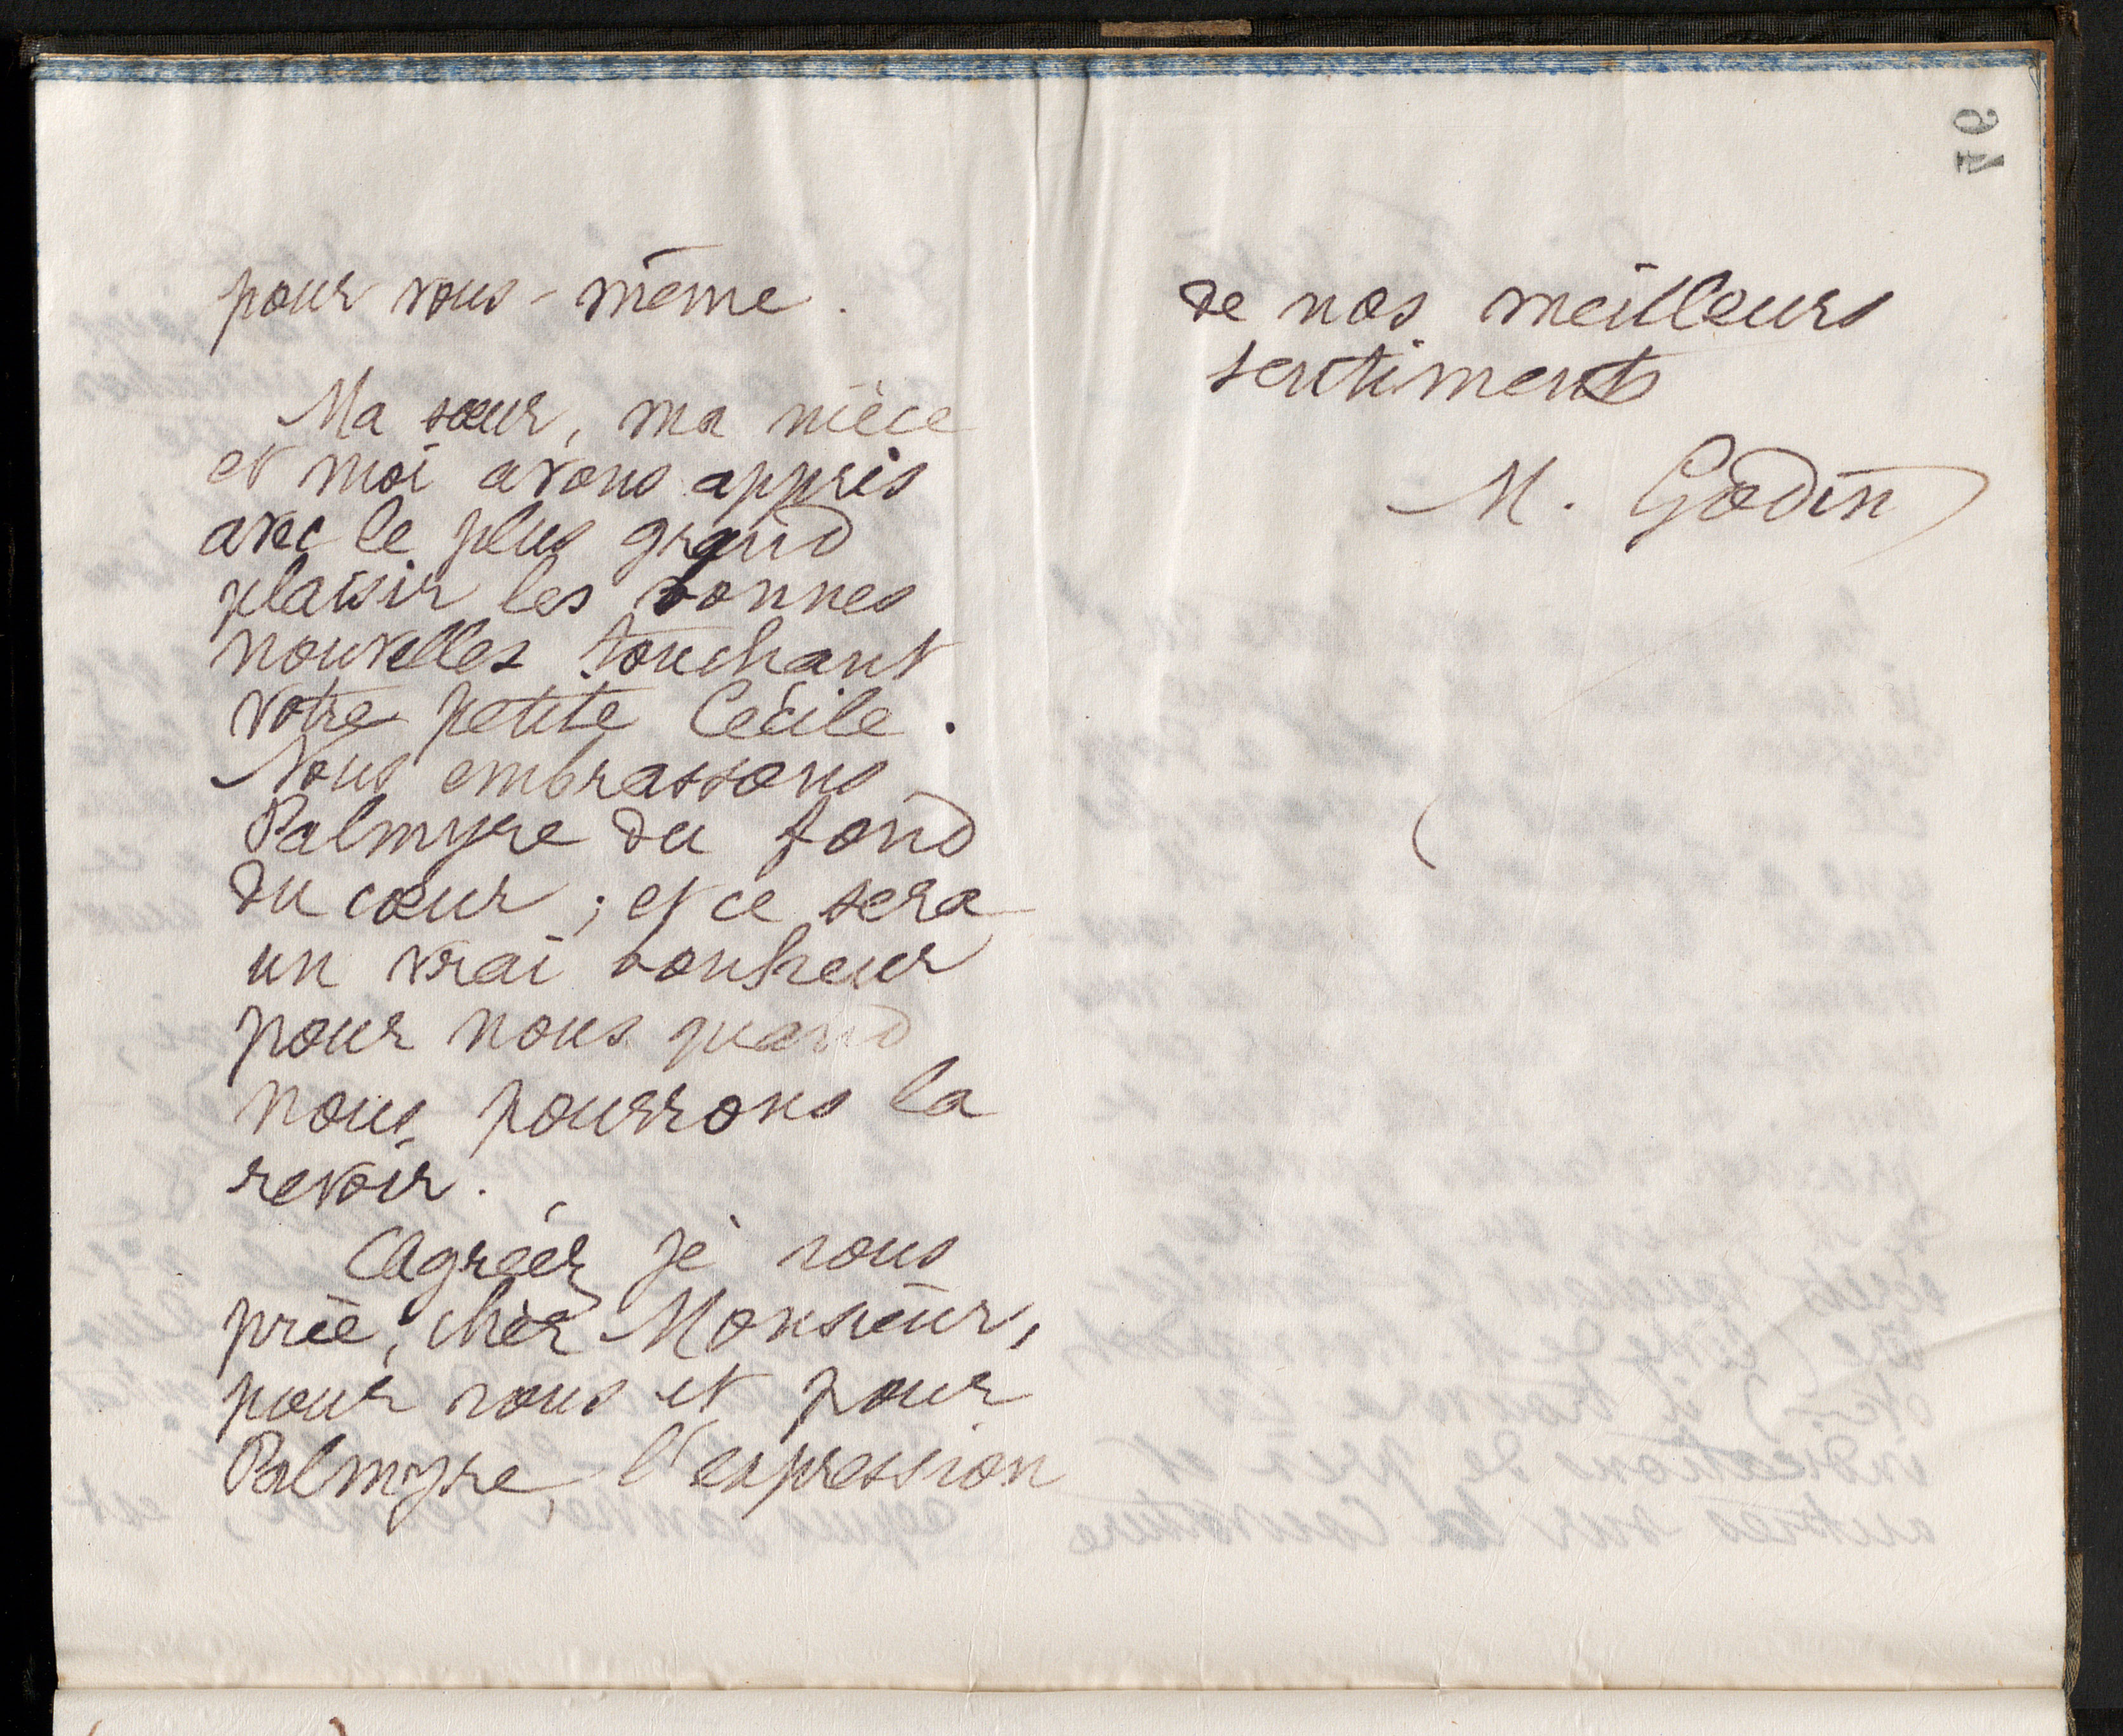 pour vous-même.
Ma sœur, ma nièce
et moi avons appris
avec le plus grand
plaisir les bonnes
nouvelles touchant
votre petite Cécile.
Nous embrassons
Palmyre du fond
du cœur ; et ce sera
un vrai bonheur
pour nous quand
nous pourrons la
revoir.
Agréez, je vous
prie, cher Monsieur,
pour vous et pour
Palmyre, l'expression
46
de nos meilleurs
sentiments
M. Godin